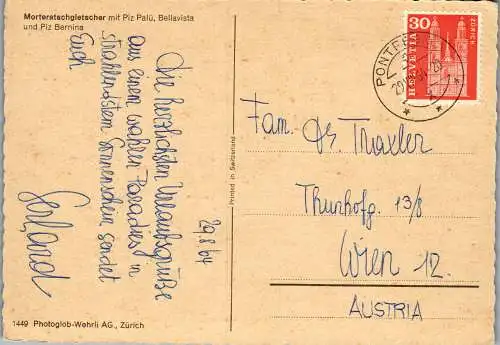 Morteratschgletscher mit Piz Palü, Bellavista
und Piz Bernina
29.8.64
Die herzlichsten Urlaubsgrüße
aus einem wahren Paradies in
strahlendstem Sonnenschein sendet
Euch
Gerland
1449 Photoglob-Wehrli AG., Zürich
Printed in Switzerland
30
HELVETIA
ZÜRICH
Fam. Dr. Traxler
Thunhofg. 13/8
Wien 12.
AUSTRIA